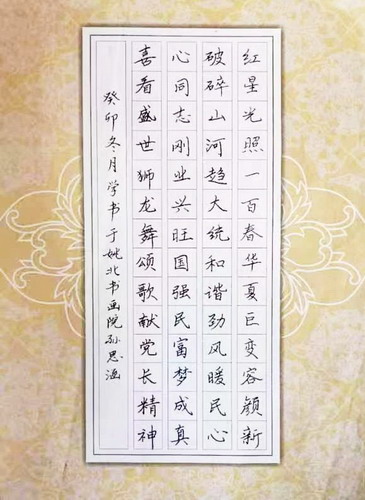 红星光照一百春华夏巨变容颜新
破碎山河趋大统和谐劲风暖民心
心同志刚业兴旺国强民富梦成真
喜看盛世狮龙舞颂歌献党长精神
癸卯冬月学书于姚北书画院孙思涵